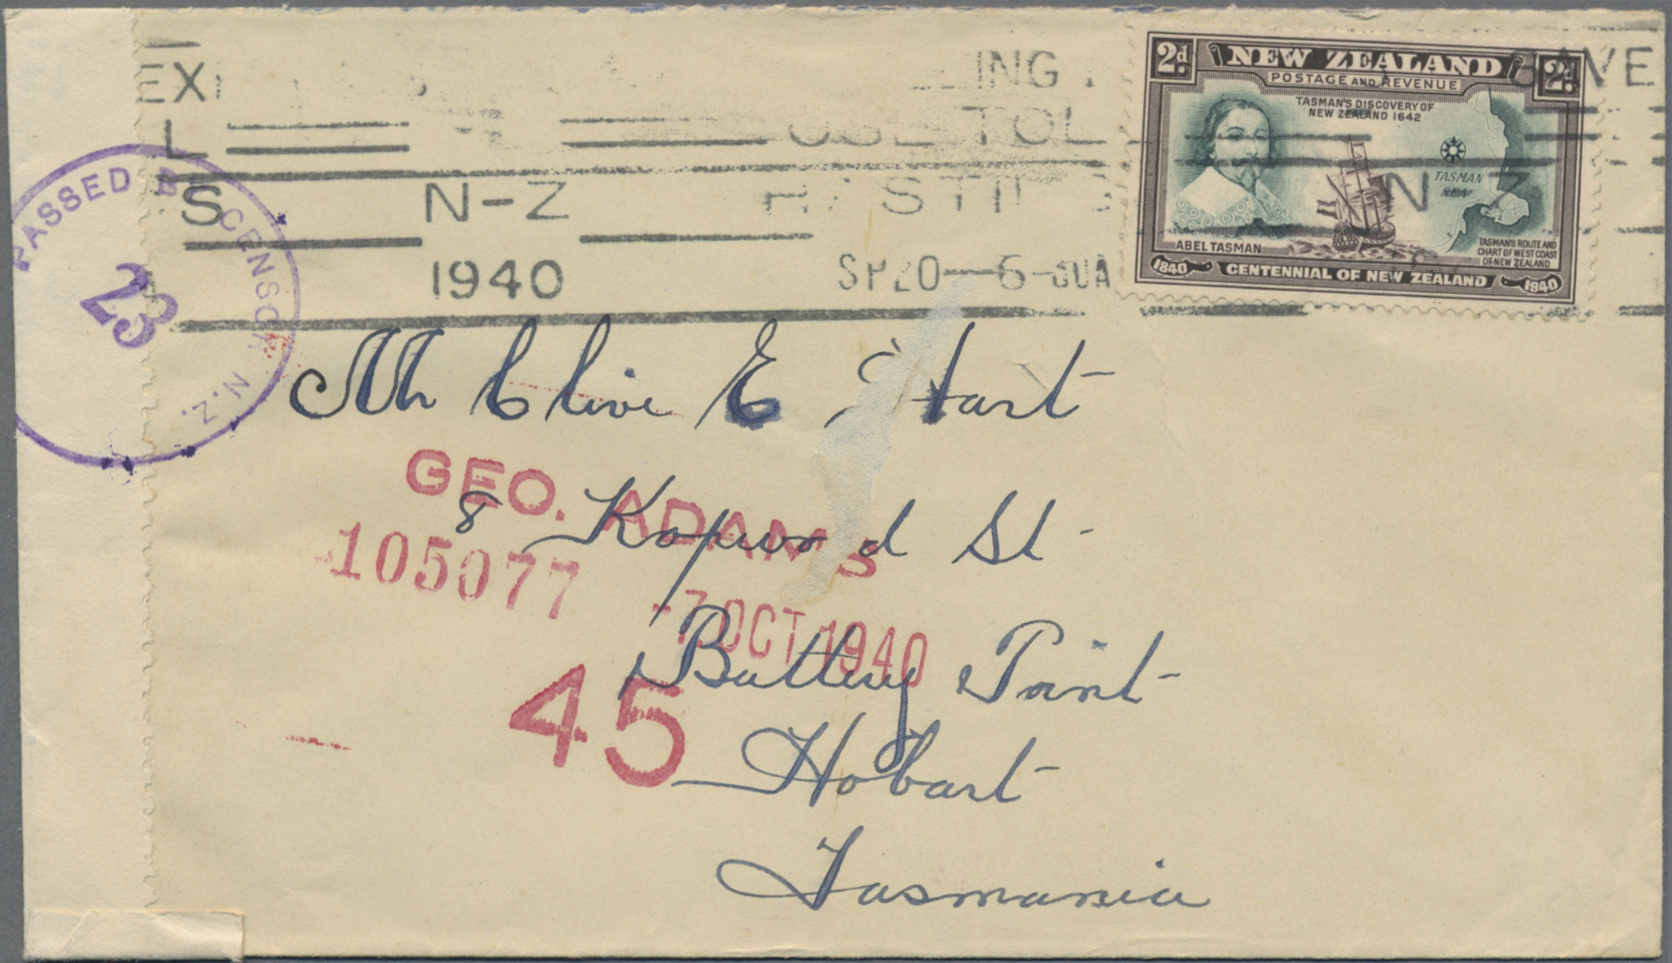 2d NEW ZEALAND 2d
POSTAGE AND REVENUE
TASMAN'S DISCOVERY OF
NEW ZEALAND 1642
TASMAN
SEA
ABEL TASMAN
TASMAN'S ROUTE AND
CHART OF WEST COAST
OF NEW ZEALAND
1840 CENTENNIAL OF NEW ZEALAND 1940
N-Z
1940
SP20—6-30A
N Z
PASSED BY CENSOR N.Z.
23
Mr Clive E Hart
8 St
Battery Point
Hobart
Tasmania
GEO. ADAMS
105077
-7 OCT 1940
45